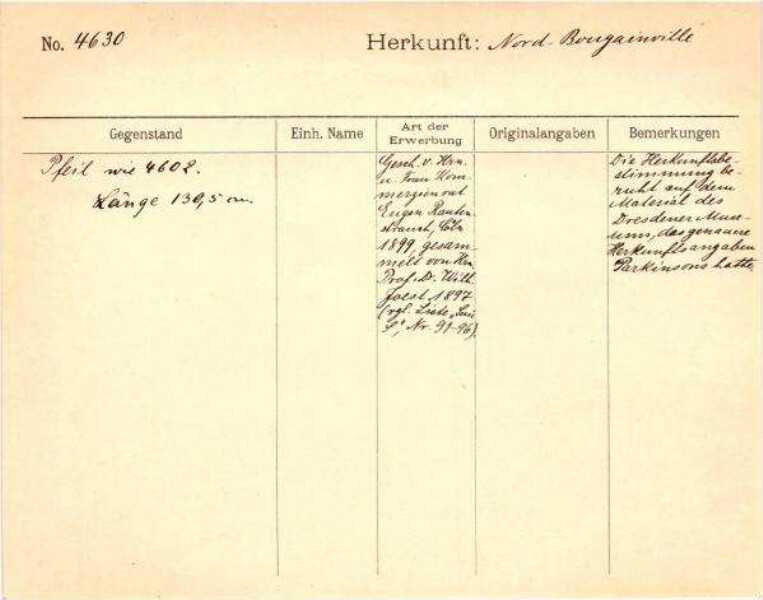 No. 4630
Herkunft: Nord-Bougainville
Gegenstand
Einh. Name
Art der
Erwerbung
Originalangaben
Bemerkungen
Pfeil wie 4602.
Länge 130,5 cm.
Gesch. v. Hrn.
u. Frau Kom-
merzienrat
Eugen Rauten-
strauch, Cöln
1899, gesam-
melt von Hn.
Prof. Dr. Wilh.
Joest 1897
(vgl. Liste
Nr. 91-96).
Die Herkunftsbe-
stimmung be-
ruht auf dem
Material des
Dresdener Muse-
ums, das genauere
Herkunftsangaben
Parkinsons hatte.